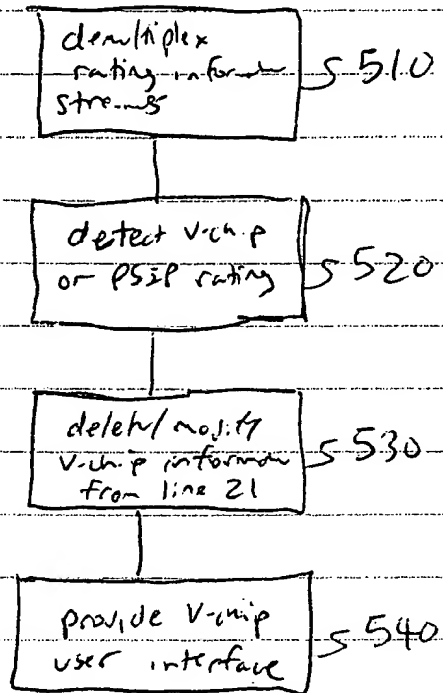 demultiplex
rating inform
streams
S 510
detect V-chip
or PSIP rating
S 520
delete/modify
V-chip inform
from line 21
S 530
provide V-chip
user interface
S 540